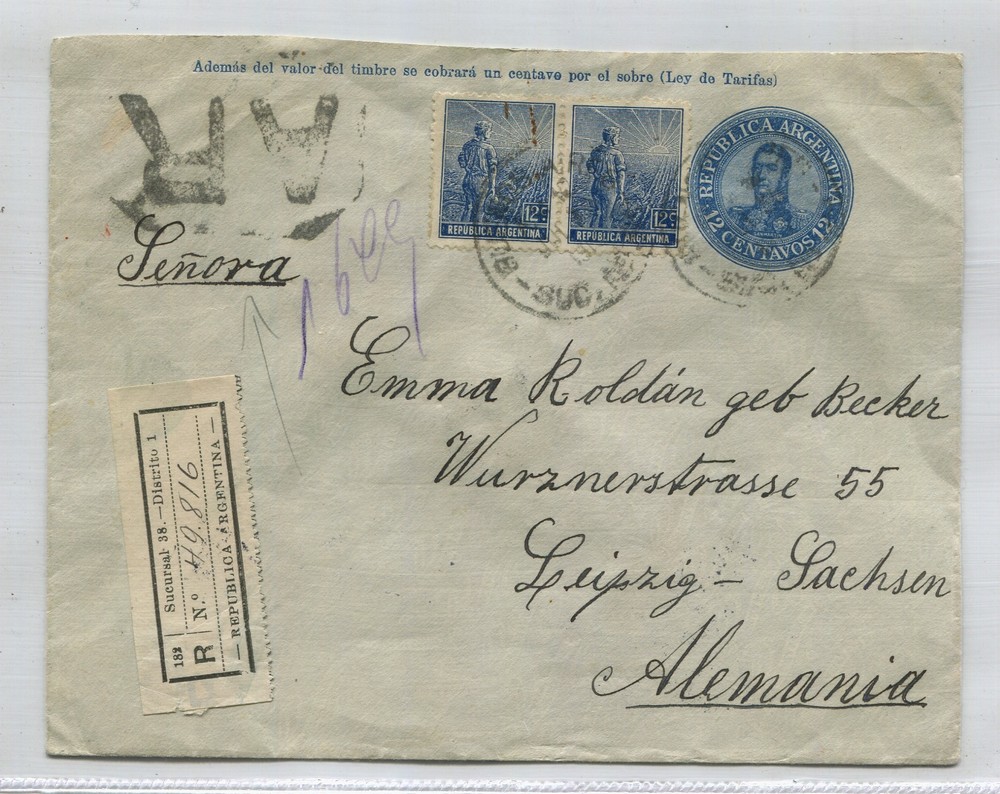 Además del valor del timbre se cobrará un centavo por el sobre (Ley de Tarifas)
AR
12 C
REPÚBLICA ARGENTINA
12 C
REPÚBLICA ARGENTINA
REPUBLICA ARGENTINA
12 CENTAVOS 12
SUC.
Señora
Emma Roldán geb Becker
Wurznerstrasse 55
Leipzig - Sachsen
Alemania
182
Sucursal 38.—Distrito 1
R N.º 49.816
— REPUBLICA ARGENTINA —